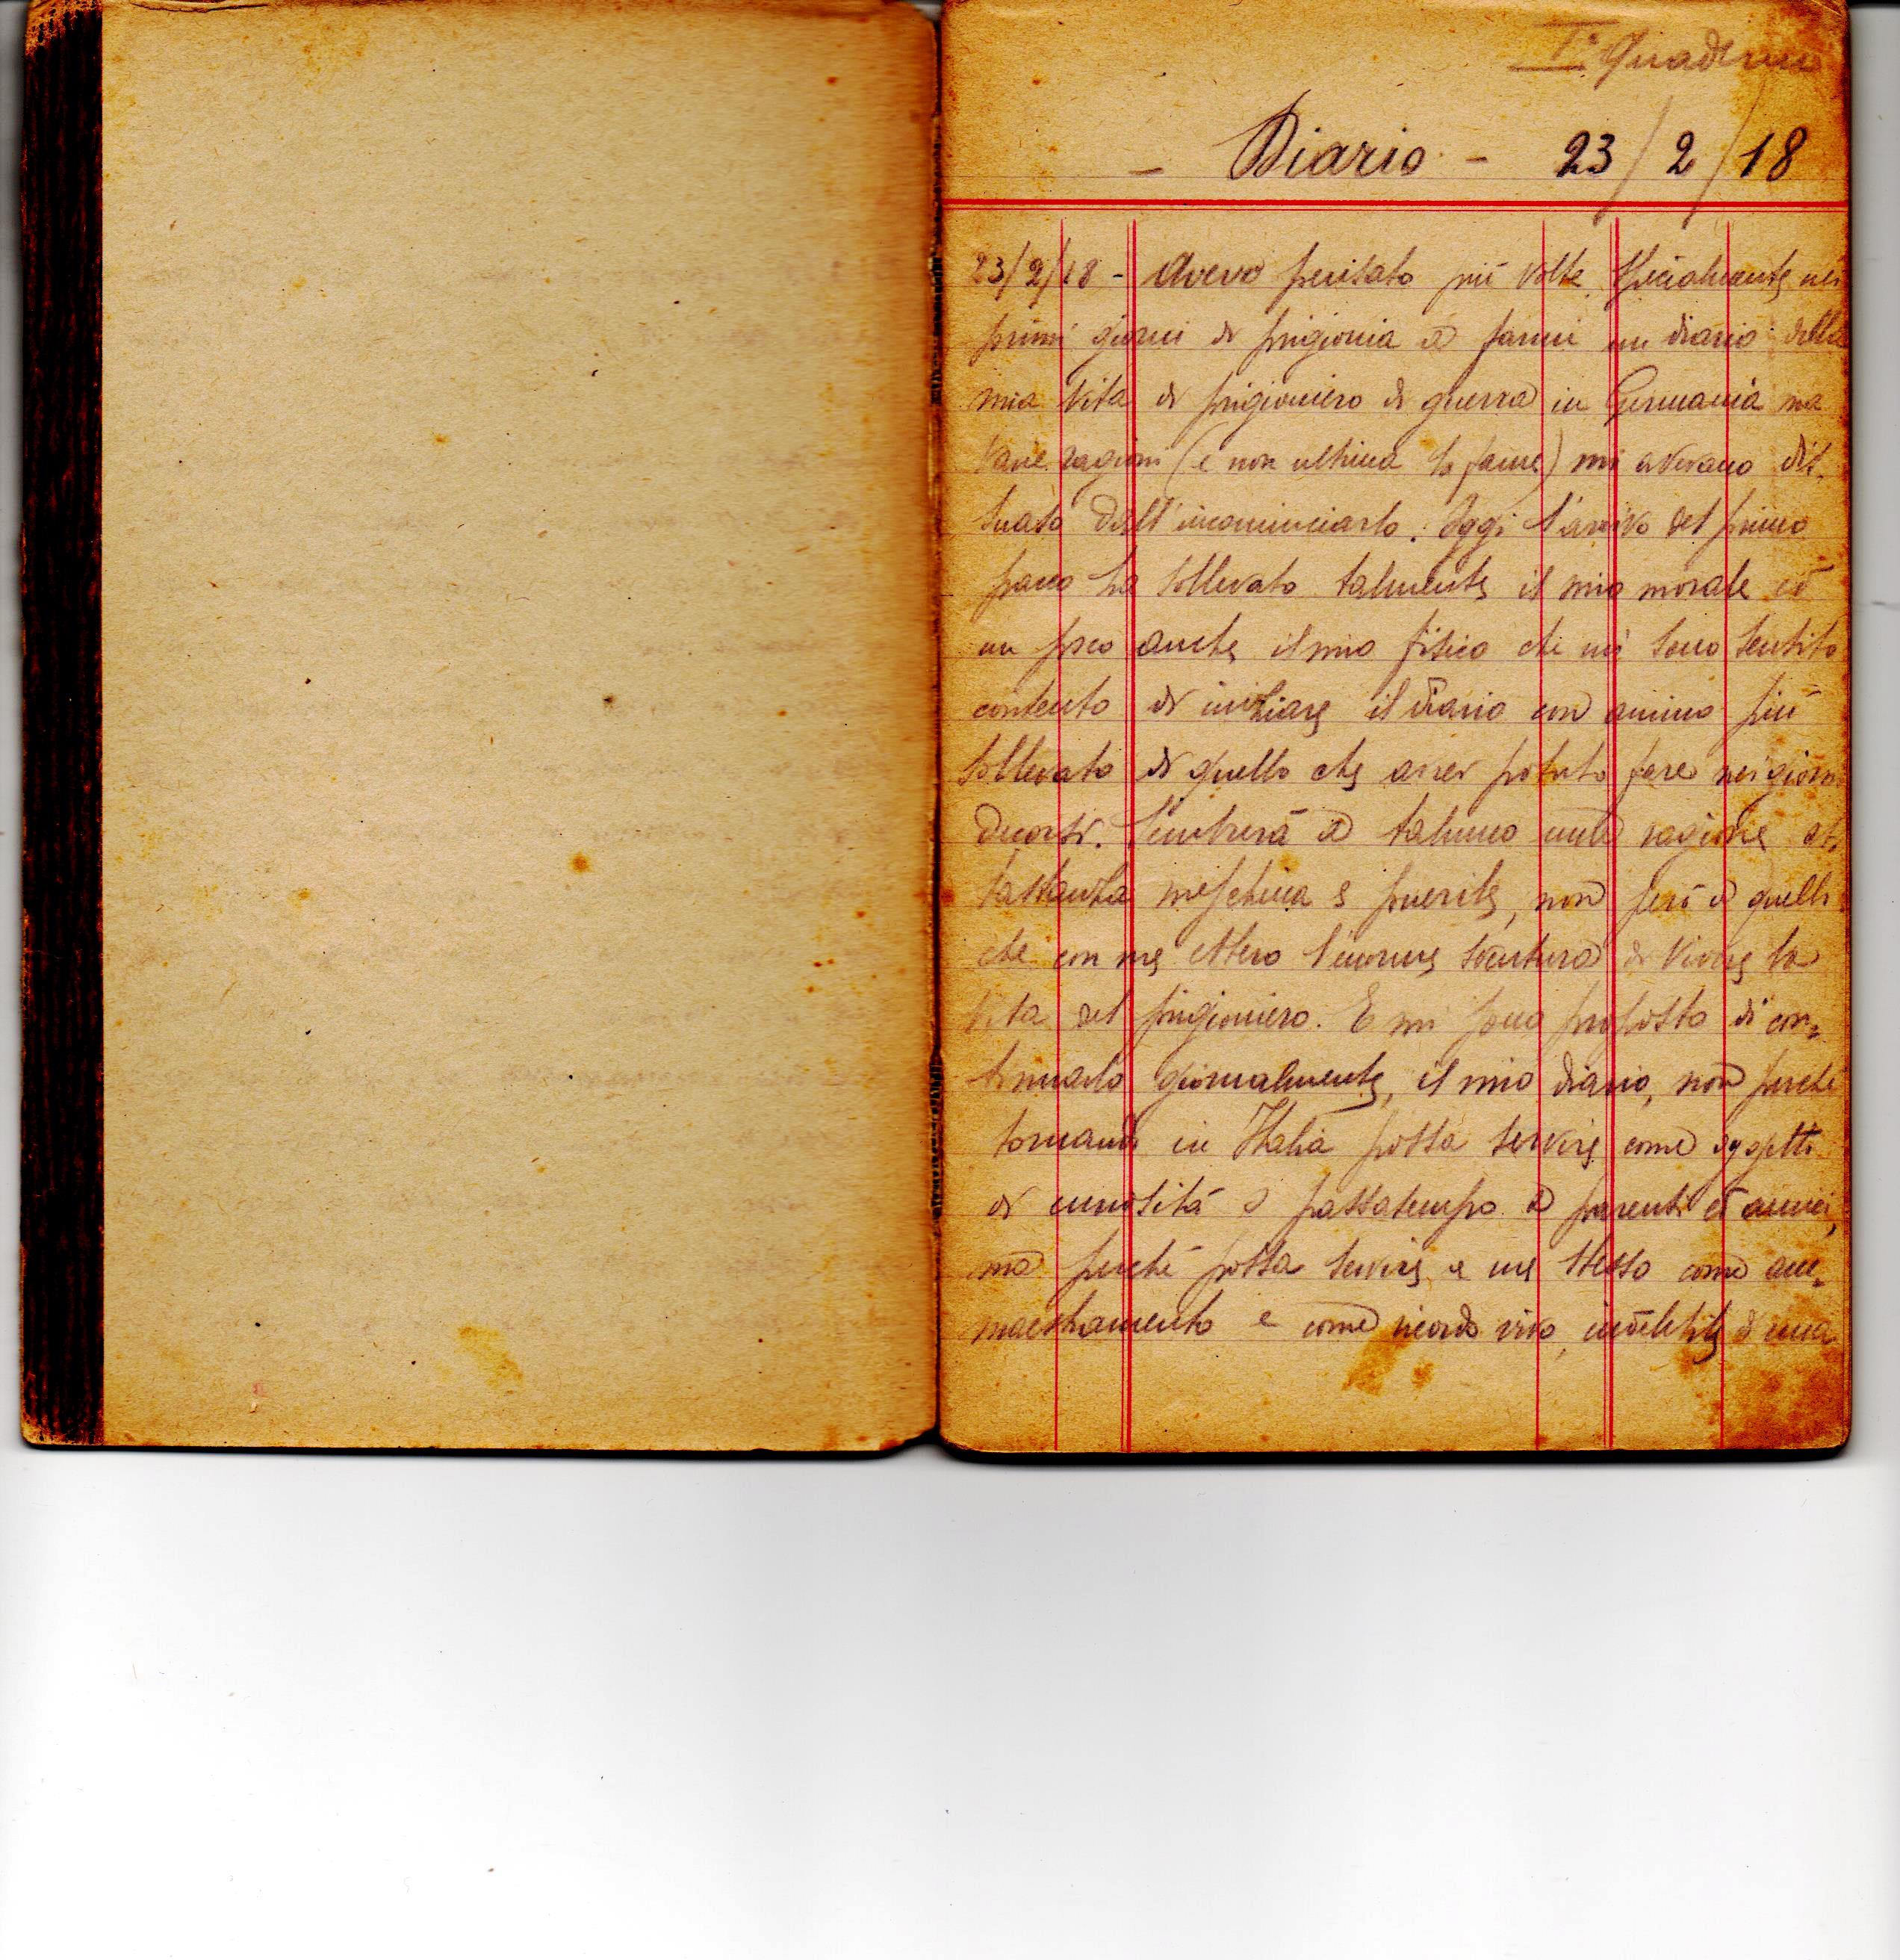 I° Quaderno
- Diario - 23/2/18
23/2/18 - Avevo pensato più volte, specialmente nei
primi giorni di prigionia a farmi un diario della
mia vita di prigioniero di guerra in Germania ma
varie ragioni (e non ultima la fame) mi avevano dis-
suaso dall'incominciarlo. Oggi l'arrivo del primo
pacco ha sollevato talmente il mio morale ed
un poco anche il mio fisico che mi sono sentito
contento di iniziare il diario con animo più
sollevato di quello che avrei potuto fare nei giorni
decorsi. Sembrerà a taluno una ragione ab-
bastanza meschina e puerile, non però a quelli
che con me ebbero l'enorme sventura di vivere la
vita del prigioniero. E mi sono proposto di con-
tinuarlo giornalmente, il mio diario, non perché
tornando in Italia possa servire come oggetto
di curiosità o passatempo a parenti ed amici,
ma perché possa servire a me stesso come am-
maestramento e come ricordo vivo, indelebile di una